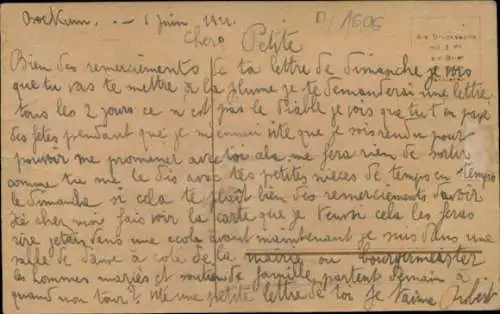 1 Juin
D/1606
Chère Petite
Bien des remerciements de ta lettre de dimanche je vois
que tu vas te mettre à la plume je te demanderai une lettre
tous les 2 jours ce n est pas le diable je vois que tu t en paye
des fetes pendant que je m ennui vite que je soi rendu pour
pouvoir me promener avec toi ala me fera rien de sortir
comme tu me le dis avec tes petites nieces de temps en temps
le dimanche si cela te plait bien des remerciements d'avoir
cher moi fais voir la carte que je t'envoi cela les feras
rire jetais dans une ecole avant maintenant je suis dans une
salle de danse à coté de la mairie ou bourgmeester
les hommes mariés et soutien de famille partent demain à
quand mon tour? une petite lettre de toi Je t'aime